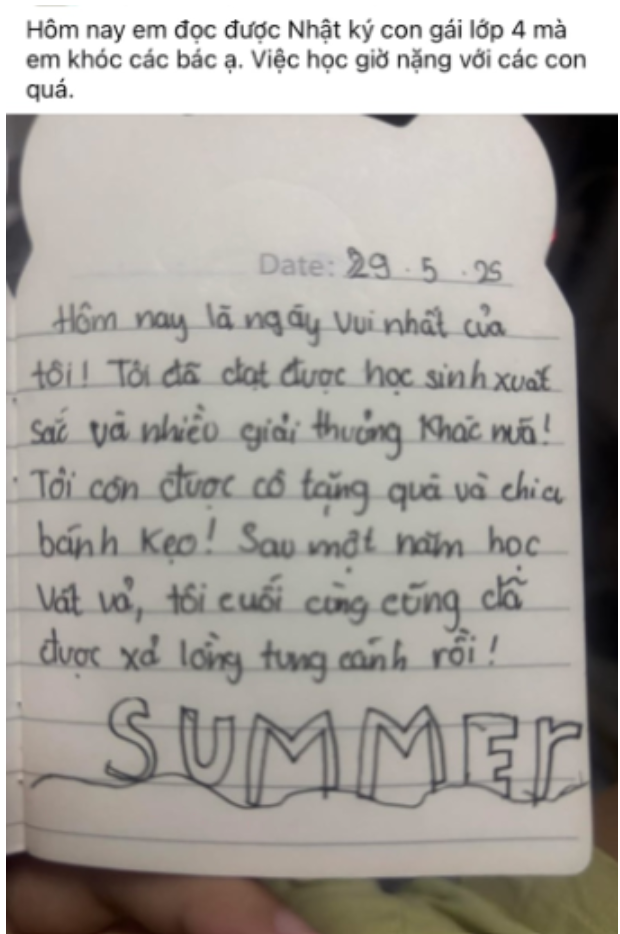 Hôm nay em đọc được Nhật ký con gái lớp 4 mà
em khóc các bác ạ. Việc học giờ nặng với các con
quá.
Date: 29.5.25
Hôm nay là ngày vui nhất của
tôi! Tôi đã đạt được học sinh xuất
sắc và nhiều giải thưởng khác nữa!
Tôi còn được cô tặng quà và chia
bánh kẹo! Sau một năm học
vất vả, tôi cuối cùng cũng đã
được xả lồng tung cánh rồi!
SUMMEr